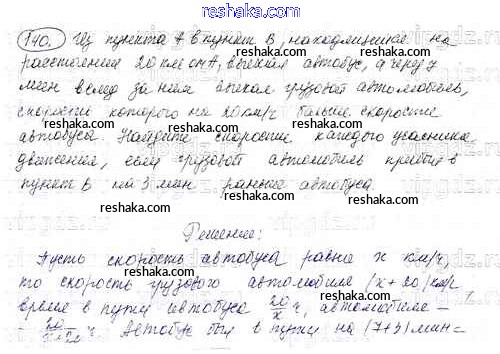 www.reshaka.com
140. Из пункта A в пункт B, находящийся на
расстоянии 20 км от A, выехал автобус, а через 7
мин вслед за ним выехал грузовой автомобиль,
скорость которого на 20 км/ч больше скорости
автобуса. Найдите скорости каждого участника
движения, если грузовой автомобиль прибыл в
пункт B на 3 мин раньше автобуса.
Решение:
Пусть скорость автобуса равна x км/ч,
то скорость грузового автомобиля (x+20) км/ч
время в пути автобуса 20/x ч, автомобиля –
– 20/x+20 ч. Автобус был в пути на (7+3) мин =
reshaka.com
reshaka.com
reshaka.com
reshaka.com
reshaka.com
reshaka.com
reshaka.com
reshaka.com